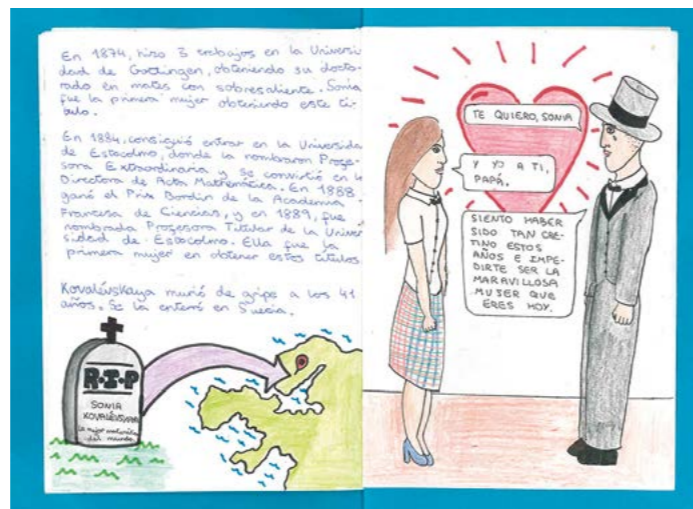 En 1874, hizo 3 trabajos en la Universi-
dad de Gottingen, obteniendo su docto-
rado en mates con sobresaliente. Sonia
fue la primera mujer obteniendo este tí-
tulo.
En 1884, consiguió entrar en la Universida
de Estocolmo, donde la nombraron Profe-
sora Extraordinaria y se convirtió en la
Directora de Acta Mathemática. En 1888
ganó el Prix Bordin de la Academia
Francesa de Ciencias, y en 1889, fue
nombrada Profesora Titular de la Univer
sidad de Estocolmo. Ella fue la
primera mujer en obtener estos títulos
Kovalévskaya murió de gripe a los 41
años. Se la enterró en Suecia.
R.I.P
SONIA
KOVALÉVSKAYA
la mejor matemática
del mundo
TE QUIERO, SONIA
Y YO A TI,
PAPÁ.
SIENTO HABER
SIDO TAN CRE-
TINO ESTOS
AÑOS E IMPE-
DIRTE SER LA
MARAVILLOSA
MUJER QUE
ERES HOY.